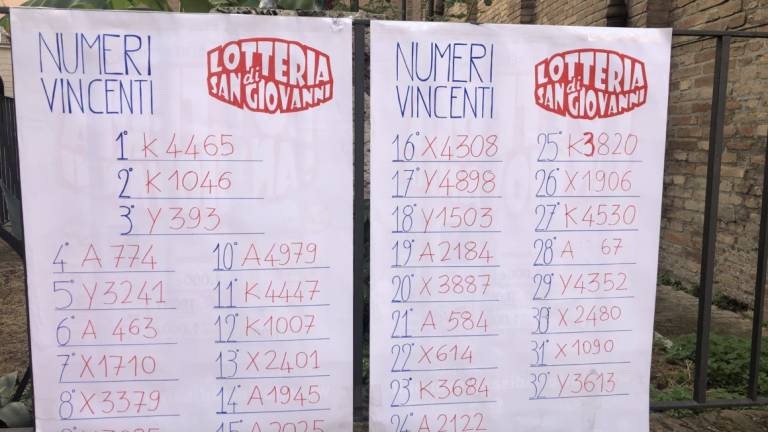 NUMERI
VINCENTI
LOTTERIA
di
SAN GIOVANNI
1° K 4465
2° K 1046
3° Y 393
4° A 774
5° Y 3241
6° A 463
7° X1710
8° X3379
10° A4979
11° K4447
12° K1007
13° X2401
14° A1945
NUMERI
VINCENTI
LOTTERIA
di
SAN GIOVANNI
16° X4308
17° Y4898
18° Y1503
19° A2184
20° X3887
21° A 584
22° X614
23° K3684
24° A2122
25° K3820
26° X1906
27° K4530
28° A 67
29° Y4352
30° X2480
31° X1090
32° Y3613